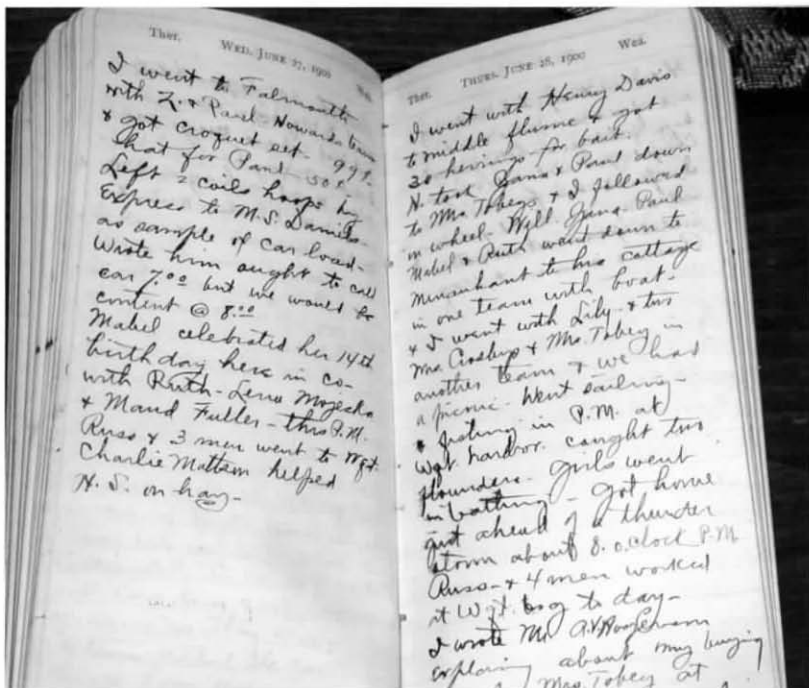 Ther. WED. JUNE 27, 1900 Wea.
I went to Falmouth
with L. & Paul Howards team
& got croquet set. 99¢
hat for Paul 50¢
Left 2 coils hoops by
Express to M.S. Daniels
as sample of car load-
Wrote him ought to call
car 7.00 but we would be
content @ 8.00
Mabel celebrated her 14th
birthday here in co-
with Ruth - Lena
& Maud Fuller - this P.M.
Russ & 3 men went to Wqt.
Charlie Mattson helped
H. S. on hay-
Ther. THURS. JUNE 28, 1900 Wea.
I went with Henry Davis
to middle flume & got
30 herrings for bait.
H. took & Paul down
to Mrs Tobeys & I followed
in wheel. Paul
Mabel & Ruth went down to
Menauhant to his cottage
in one team with boat.
& I went with Lily. & two
Mrs Crosbys & Mrs. Tobey in
another team & we had
a picnic. Went sailing-
fishing in P.M. at
Wqt. harbor. caught two
flounders. girls went
in bathing - got home
just ahead of a thunder
storm about 8. o.clock P.M.
Russ- & 4 men worked
at Wqt. bog to day-
I wrote Mr.
explaining about my buying
Mrs. Tobey at